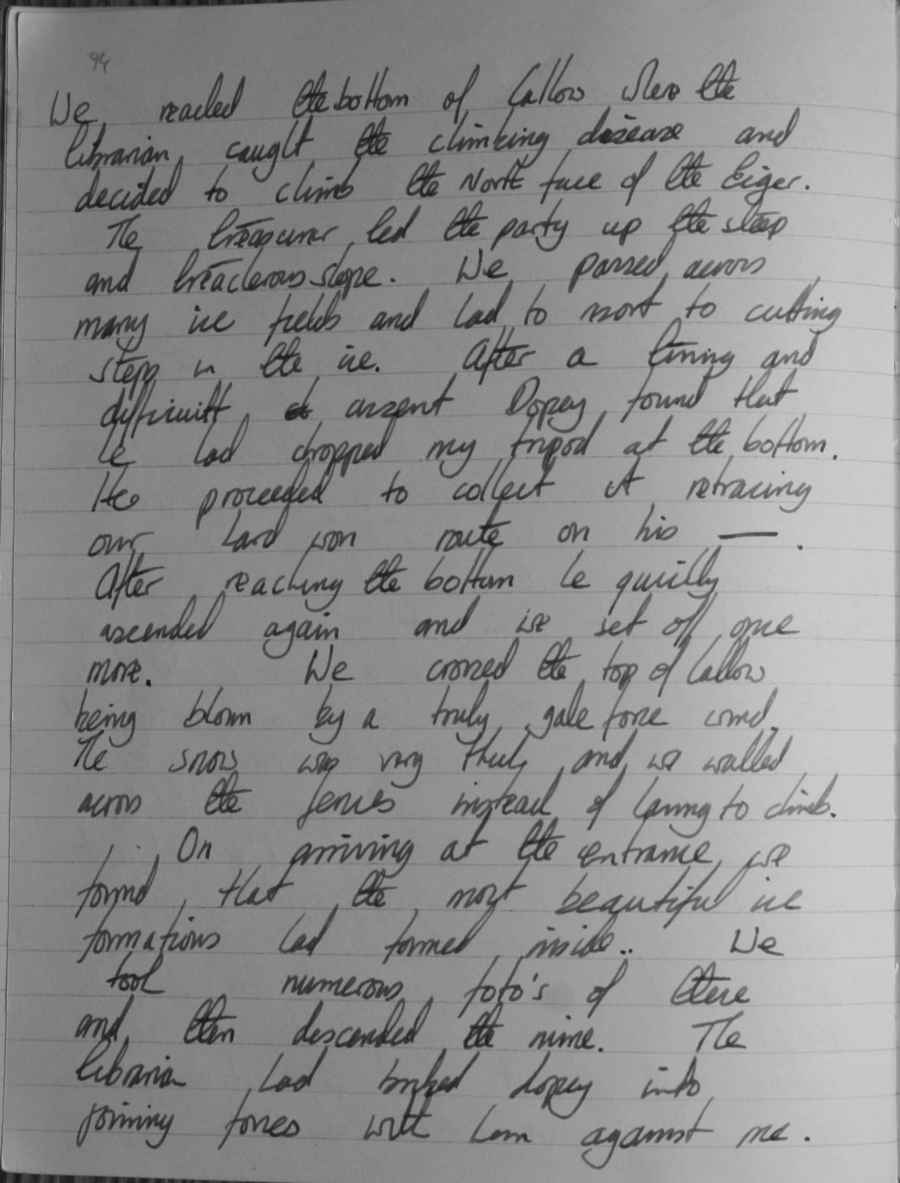 94
We reached the bottom of Callow where the
librarian caught the climbing disease and
decided to climb the North face of the Eiger.
The treasurer led the party up the steep
and treacherous slope. We passed across
many ice fields and had to resort to cutting
steps in the ice. After a tiring and
difficult ascent Dopey found that
he had dropped my tripod at the bottom.
He proceeded to collect it retracing
our hard won route on his —.
After reaching the bottom he quickly
ascended again and we set off once
more. We crossed the top of Callow
being blown by a truly gale force wind.
The snow was very thick and we walked
across the fences instead of having to climb.
On arriving at the entrance we
found that the most beautiful ice
formations had formed inside. We
took numerous foto's of these
and then descended the mine. The
librarian had bribed dopey into
joining forces with him against me.